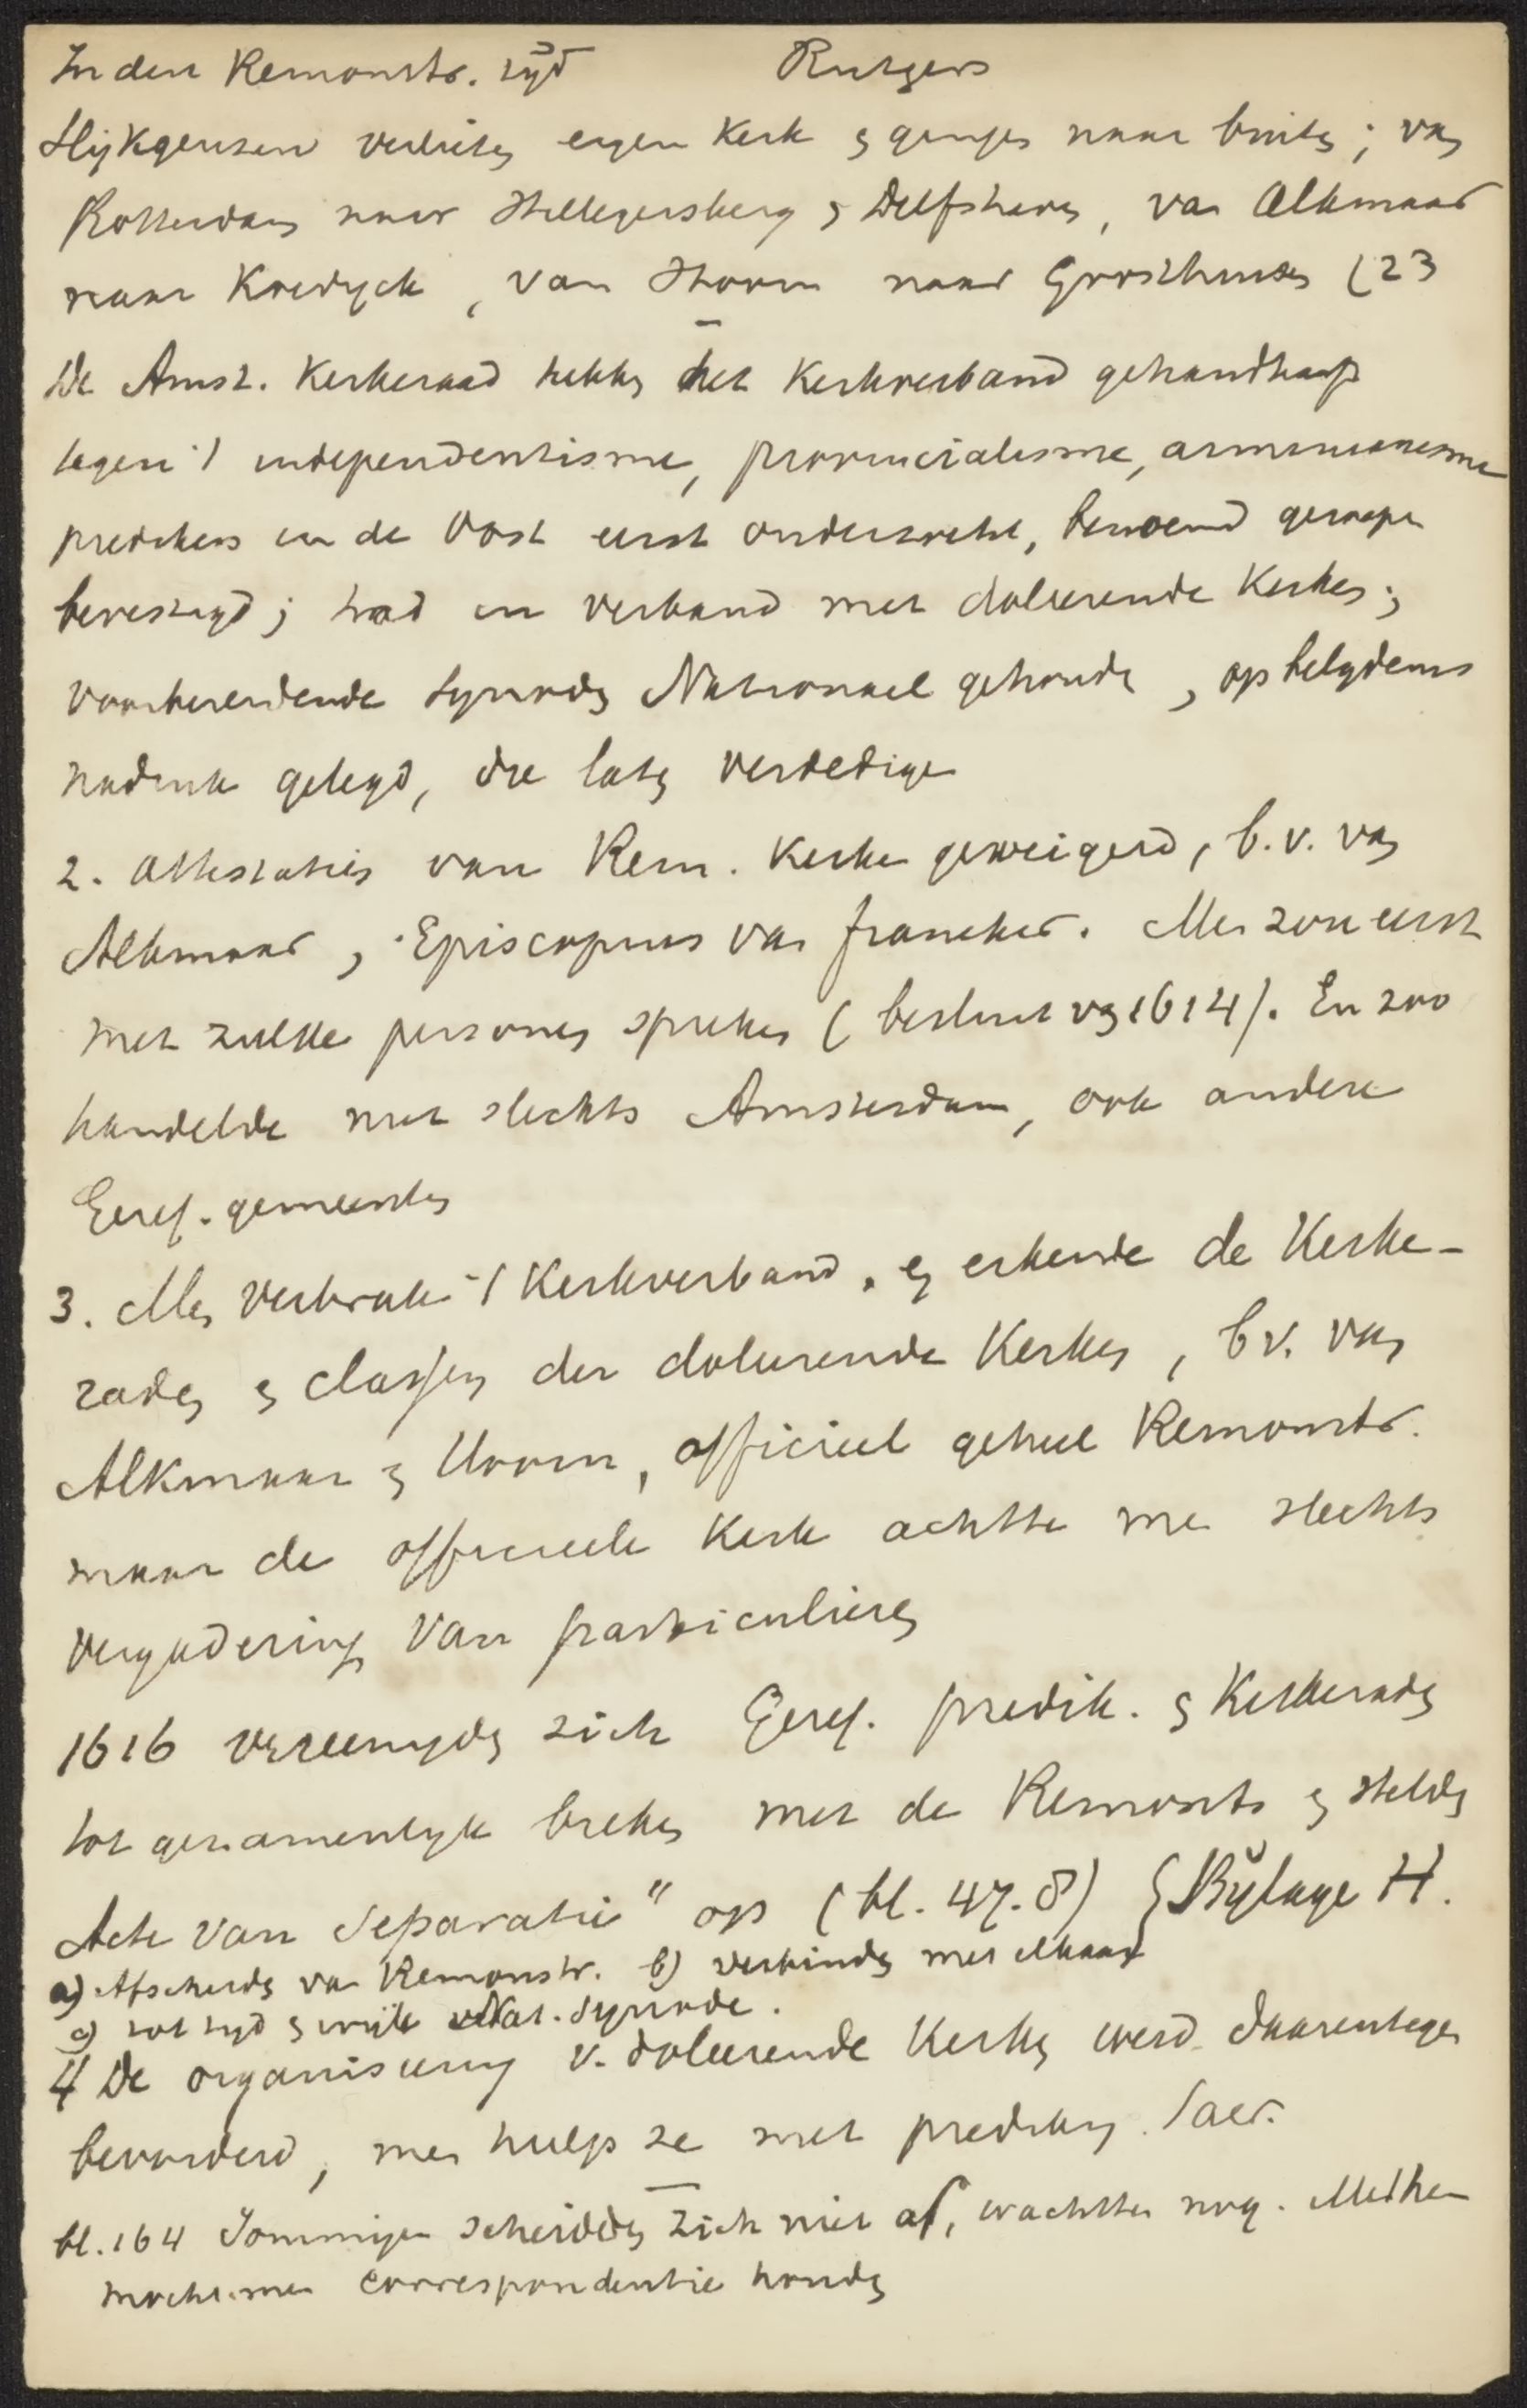 In den Remonstr. tijd Rutgers
Slijkgeuzen verlieten eigen Kerk en gingen naar buiten; van
Rotterdam naar Hillegersberg en Delfshaven, van Alkmaar
naar Koedyck, van Hoorn naar Grosthuizen (23
De Amst. Kerkeraad hebben het Kerkverband gehandhaafd
tegen 't independentisme, provincialisme, arminianisme
predikers in de Oost eerst onderzocht, beroepen
bevestigd; trad in verband met doleerende Kerken;
voorbereidende Synoden Nationaal gehouden, op belydenis
nadruk gelegd, die laten verdedigen
2. Attestaties van Rem. Kerken geweigerd, b.v. van
Alkmaar, Episcopius van Franeker. Men zou eerst
met zulke personen spreken (besluit van 1614). En zoo
handelde niet slechts Amsterdam, ook andere
Geref. gemeenten
3. Men verbrak 't Kerkverband, en erkende de Kerke-
raden en classen der doleerende Kerken, bv. van
Alkmaar en Hoorn, officieel geheel Remonstr.
maar de officieele Kerk achtte men slechts
vergadering van particulieren
1616 vereenigden zich Geref. predik. en Kerkeraden
tot gezamenlyk breken met de Remonstr en stelden
Acte van Separatie" op (bl. 47.8) { Bijlage H.
a) Afscheiden van Remonstr. b) verbinden met elkaar
c) tot tyd en wijle v Nat. Synode.
4 De organiseering v. doleerende Kerken werd daarentegen
bevorderd, men hielp ze met prediking. Sacr.
bl. 164 Sommigen scheidden zich niet af, wachtten nog. Met hen
mocht men correspondentie houden